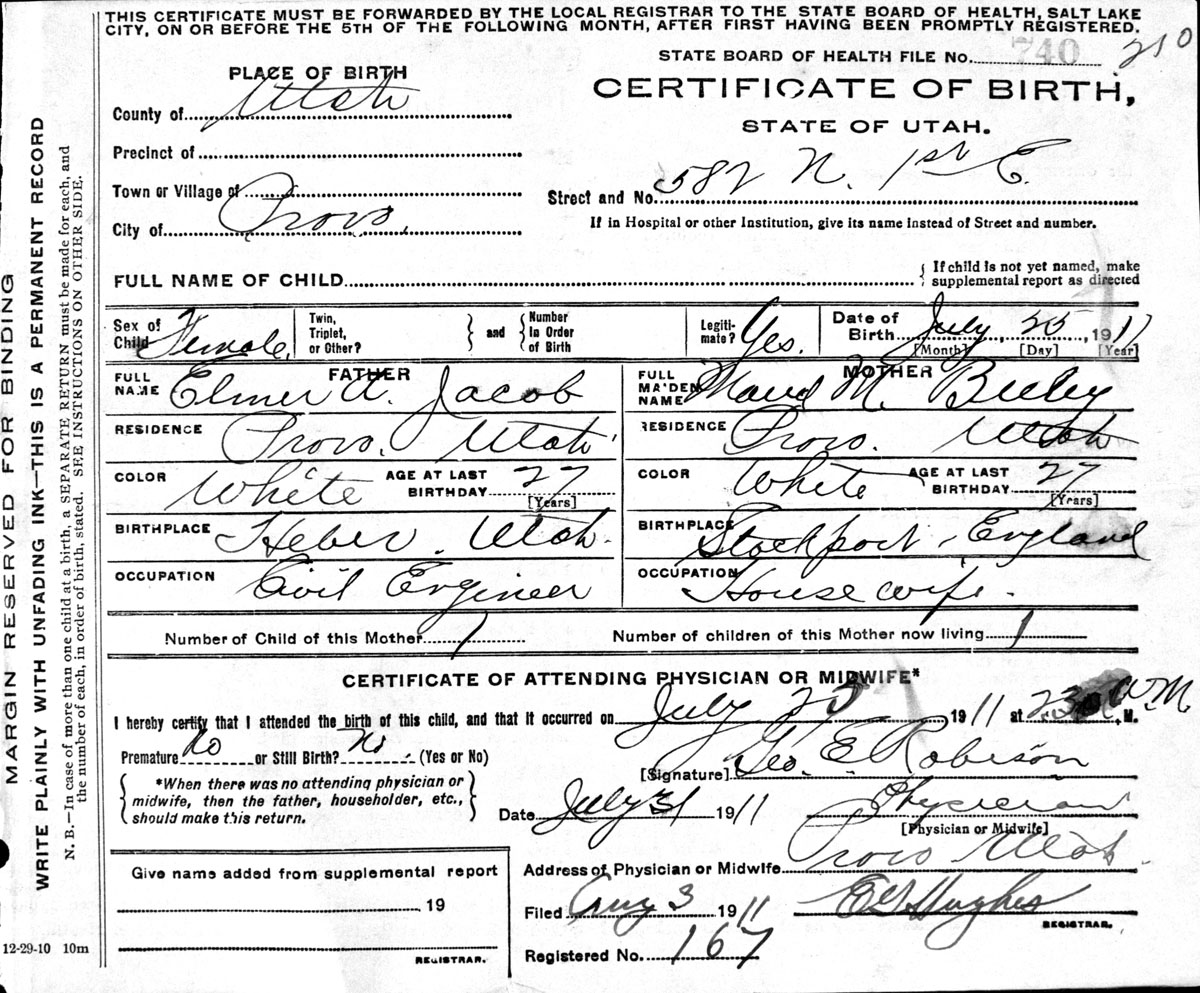 THIS CERTIFICATE MUST BE FORWARDED BY THE LOCAL REGISTRAR TO THE STATE BOARD OF HEALTH, SALT LAKE
CITY, ON OR BEFORE THE 5TH OF THE FOLLOWING MONTH, AFTER FIRST HAVING BEEN PROMPTLY REGISTERED.
STATE BOARD OF HEALTH FILE No. 740 210
PLACE OF BIRTH
CERTIFICATE OF BIRTH,
STATE OF UTAH.
County of Utah
Precinct of
Town or Village of
City of Provo.
Street and No. 582 N. 1st E.
If in Hospital or other Institution, give its name instead of Street and number.
FULL NAME OF CHILD
{ If child is not yet named, make
supplemental report as directed
Sex of Child Female.
Twin, Triplet, or Other? } and { Number In Order of Birth
Legiti-mate? Yes.
Date of Birth July 25, 1911
[Month] [Day] [Year]
FATHER
MOTHER
FULL NAME Elmer A. Jacob
FULL MAIDEN NAME Maud M. Beeley
RESIDENCE Provo. Utah
RESIDENCE Provo. Utah
COLOR White AGE AT LAST BIRTHDAY 27 [Years]
COLOR White AGE AT LAST BIRTHDAY 27 [Years]
BIRTHPLACE Heber. Utah.
BIRTHPLACE Stockport, England
OCCUPATION Civil Engineer
OCCUPATION Housewife.
Number of Child of this Mother 1
Number of children of this Mother now living 1
CERTIFICATE OF ATTENDING PHYSICIAN OR MIDWIFE*
I hereby certify that I attended the birth of this child, and that it occurred on July 25, 1911 at M.
Premature No or Still Birth? No. (Yes or No)
[Signature] Geo. E. Robison
{ *When there was no attending physician or
midwife, then the father, householder, etc.,
should make this return. }
Date July 31 1911 Physician
[Physician or Midwife]
Address of Physician or Midwife Provo Utah.
Give name added from supplemental report
19
REGISTRAR.
Filed Aug 3 1911 Hughes
REGISTRAR.
Registered No. 167
12-29-10 10m
MARGIN RESERVED FOR BINDING
WRITE PLAINLY WITH UNFADING INK—THIS IS A PERMANENT RECORD
N. B.—In case of more than one child at a birth, a SEPARATE RETURN must be made for each, and
the number of each, in order of birth, stated. SEE INSTRUCTIONS ON OTHER SIDE.